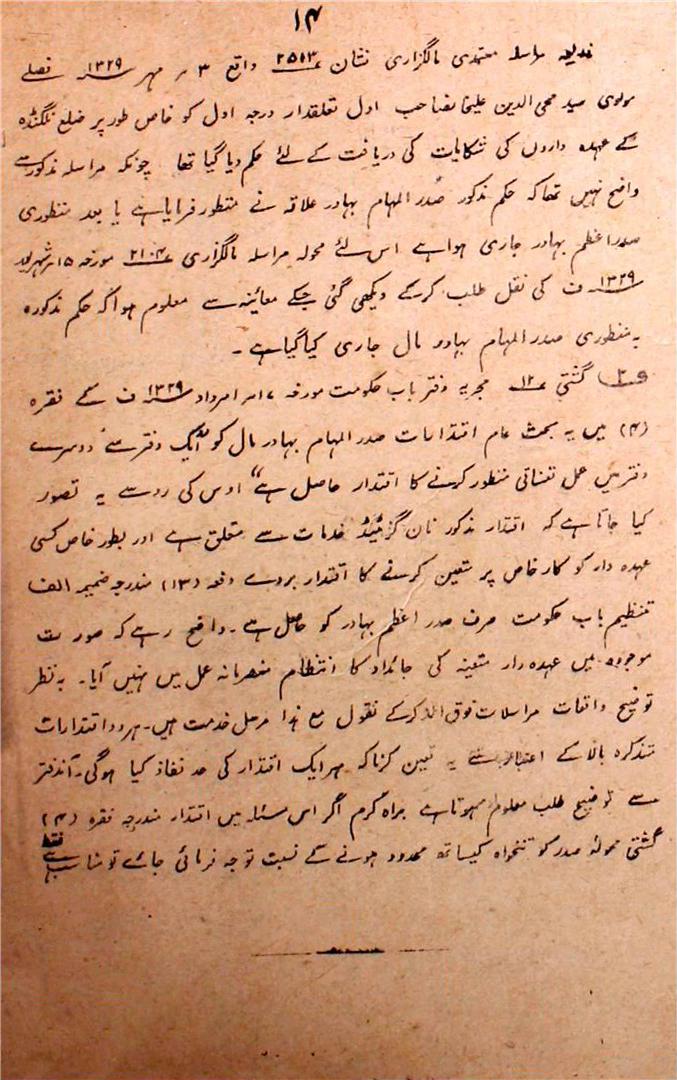 ۱۴
بذریعہ مراسلہ معتمدی مالگزاری نشان ۲۵۱۳ واقع ۳ مہر ۱۳۲۹ فصلی
مولوی سید محی الدین علیخانصاحب اول تعلقدار درجہ اول کو خاص طور پر ضلع نلگنڈہ
کے عہدہ داروں کی شکایات کی دریافت کے لئے حکم دیا گیا تھا چونکہ مراسلہ مذکور سے
واضح نہیں تھا کہ حکم مذکور صدر المہام بہادر علاقہ نے منظور فرمایا ہے یا بعد منظوری
صدر اعظم بہادر جاری ہوا ہے اس لئے محولہ مراسلہ مالگزاری ۲۱۰۴ مورخہ ۱۵ شہریور
۱۳۲۹ ف کی نقل طلب کرکے دیکھی گئی جسکے معائینہ سے معلوم ہوا کہ حکم مذکورہ
بہ منظوری صدر المہام بہادر مال جاری کیا گیا ہے ۔
و۲ گشتی ۱۲ مجریہ دفتر باب حکومت مورخہ ۱۷ امرداد ۱۳۲۹ ف کے فقرہ
(۴) میں یہ بحث عام اقتدارات صدر المہام بہادر مال کو "ایک دفتر سے دوسرے
دفتر میں عمل تعیناتی منظور کرنے کا اقتدار حاصل ہے" اوس کی رو سے یہ تصور
کیا جاتا ہے کہ اقتدار مذکور نان گزیٹیڈ خدمات سے متعلق ہے اور بطور خاص کسی
عہدہ دار کو کار خاص پر متعین کرنے کا اقتدار بروے دفعہ (۱۳) مندرجہ ضمیمہ الف
تنظیم باب حکومت صرف صدر اعظم بہادر کو حاصل ہے ۔ واضح رہے کہ صورت
موجودہ میں عہدہ دار متعینہ کی جائداد کا انتظام منصرمانہ عمل میں نہیں آیا ۔ بہ نظر
توضیح واقعات مراسلات فوق الذکر کے نقول مع ہذا مرسل خدمت ہیں ۔ ہر دو اقتدارات
متذکرہ بالا کے اعتبار سے یہ تعین کرنا کہ ہر ایک اقتدار کی حد نفاذ کیا ہوگی ۔ آندفتر
سے توضیح طلب معلوم ہوتا ہے براہ کرم اگر اس مسئلہ میں اقتدار مندرجہ فقرہ (۴)
گشتی محولۂ صدر کو تنخواہ کیساتھ محدود ہونے کے نسبت توجہ فرمائی جائے تو مناسب ہے فقط